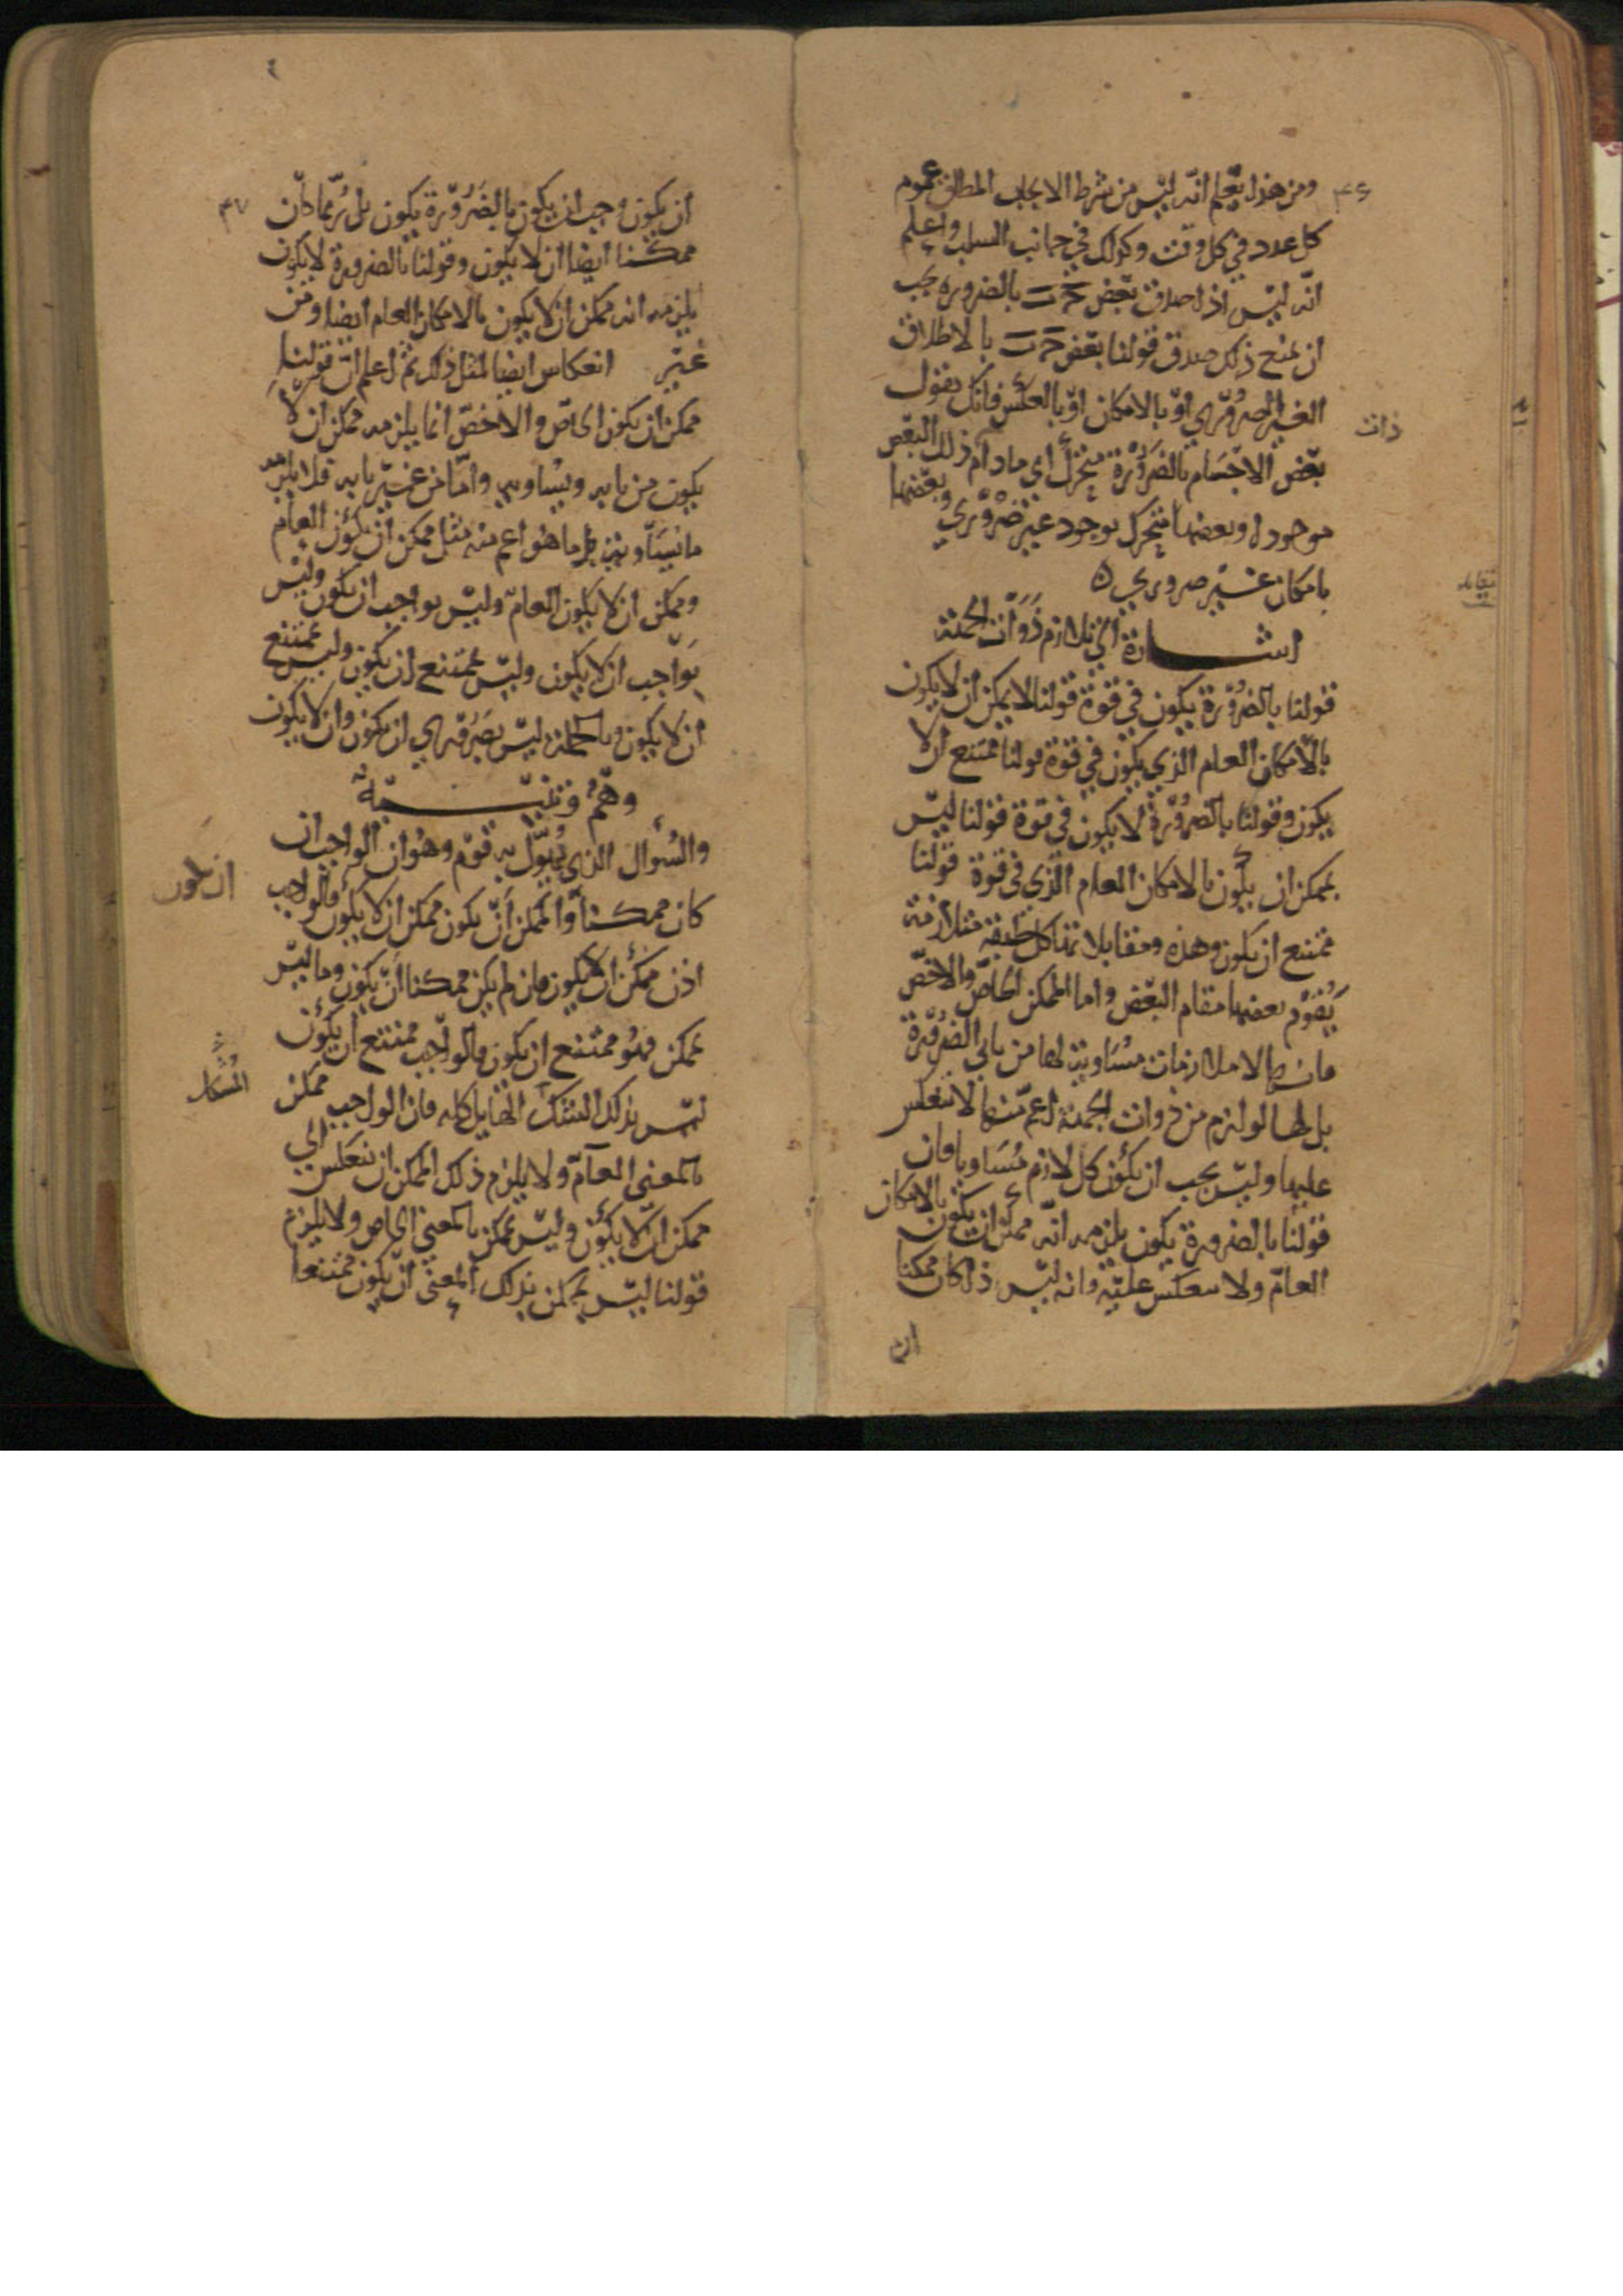 ٣٦
ومن هذا يعلم انه ليس من شرط الايجاب المطلق عموم
كل عدد في كل وقت وكذلك في جانب السلب واعلم
انه ليس اذا صدق بعض ج ب بالضروره يجب
ان يمنع ذلك صدق قولنا بعض ج ب بالاطلاق
الغير الضروري او بالامكان او بالعكس فانك تقول
بعض الاجسام بالضرورة متحرك اي مادام ذلك البعض
ذات
موجودا وبعضها متحرك بوجود غير ضروري وبعضها
بامكان غير ضروري ه
اشارة الى تلازم ذوات الجهة
قولنا بالضرورة يكون في قوة قولنا لا يمكن ان لا يكون
بالامكان العام الذي يكون في قوة قولنا ممتنع ان لا
يكون وقولنا بالضرورة لا يكون في قوة قولنا ليس
بممكن ان يكون بالامكان العام الذي في قوة قولنا
ممتنع ان يكون وهذه ومقابلاتها كل طبقة متلازمة
يقوم بعضها مقام البعض واما الممكن الخاص والاخص
فانهما لا ملازمات مساوية لهما من بابي الضرورة
بل لهما لوازم من ذوات الجهة اعم منهما لا تنعكس
عليها وليس يجب ان يكون كل لازم مساويا فان
قولنا بالضرورة يكون يلزمه انه ممكن ان يكون بالامكان
العام ولا ينعكس عليه وانه ليس اذا كان ممكنا
ان
٣٧
ان يكون وجب ان يكون بالضرورة يكون بل ربما كان
ممكنا ايضا ان لا يكون وقولنا بالضرورة لا يكون
يلزمه انه ممكن ان لا يكون بالامكان العام ايضا ومن
غير انعكاس ايضا لمثل ذلك ثم اعلم ان قولنا
ممكن ان يكون الخاص والاخص انما يلزمه ممكن ان لا
يكون من بابه ويساويه واما من غير بابه فلا يلزمه
ما يساويه بل ما هو اعم منه مثل ممكن ان يكون العام
وممكن ان لا يكون العام وليس بواجب ان يكون وليس
بواجب ان لا يكون وليس بممتنع ان يكون وليس بممتنع
ان لا يكون وبالجملة ليس بضروري ان يكون وان لا يكون
وهم وتنبيه
والسؤال الذي يهول به قوم وهو ان الواجب ان
كان ممكنا والممكن ان يكون ممكن ان لا يكون فالواجب
ان يكون
اذن ممكن ان لا يكون فان لم يكن ممكنا ان يكون وما ليس
بممكن فهو ممتنع ان يكون فالواجب ممتنع ان يكون
ليس بذلك الهايل كله فان الواجب ممكن
المشكل
بالمعنى العام ولا يلزم ذلك الممكن ان ينعكس الي
ممكن ان لا يكون وليس بممكن بالمعني الخاص ولا يلزم
قولنا ليس بممكن بذلك المعنى ان يكون ممتنعا